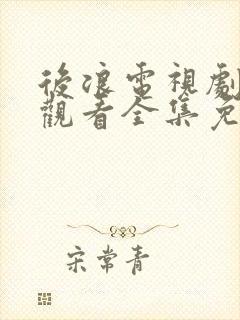 後浪電視劇
觀看全集免
宋常青